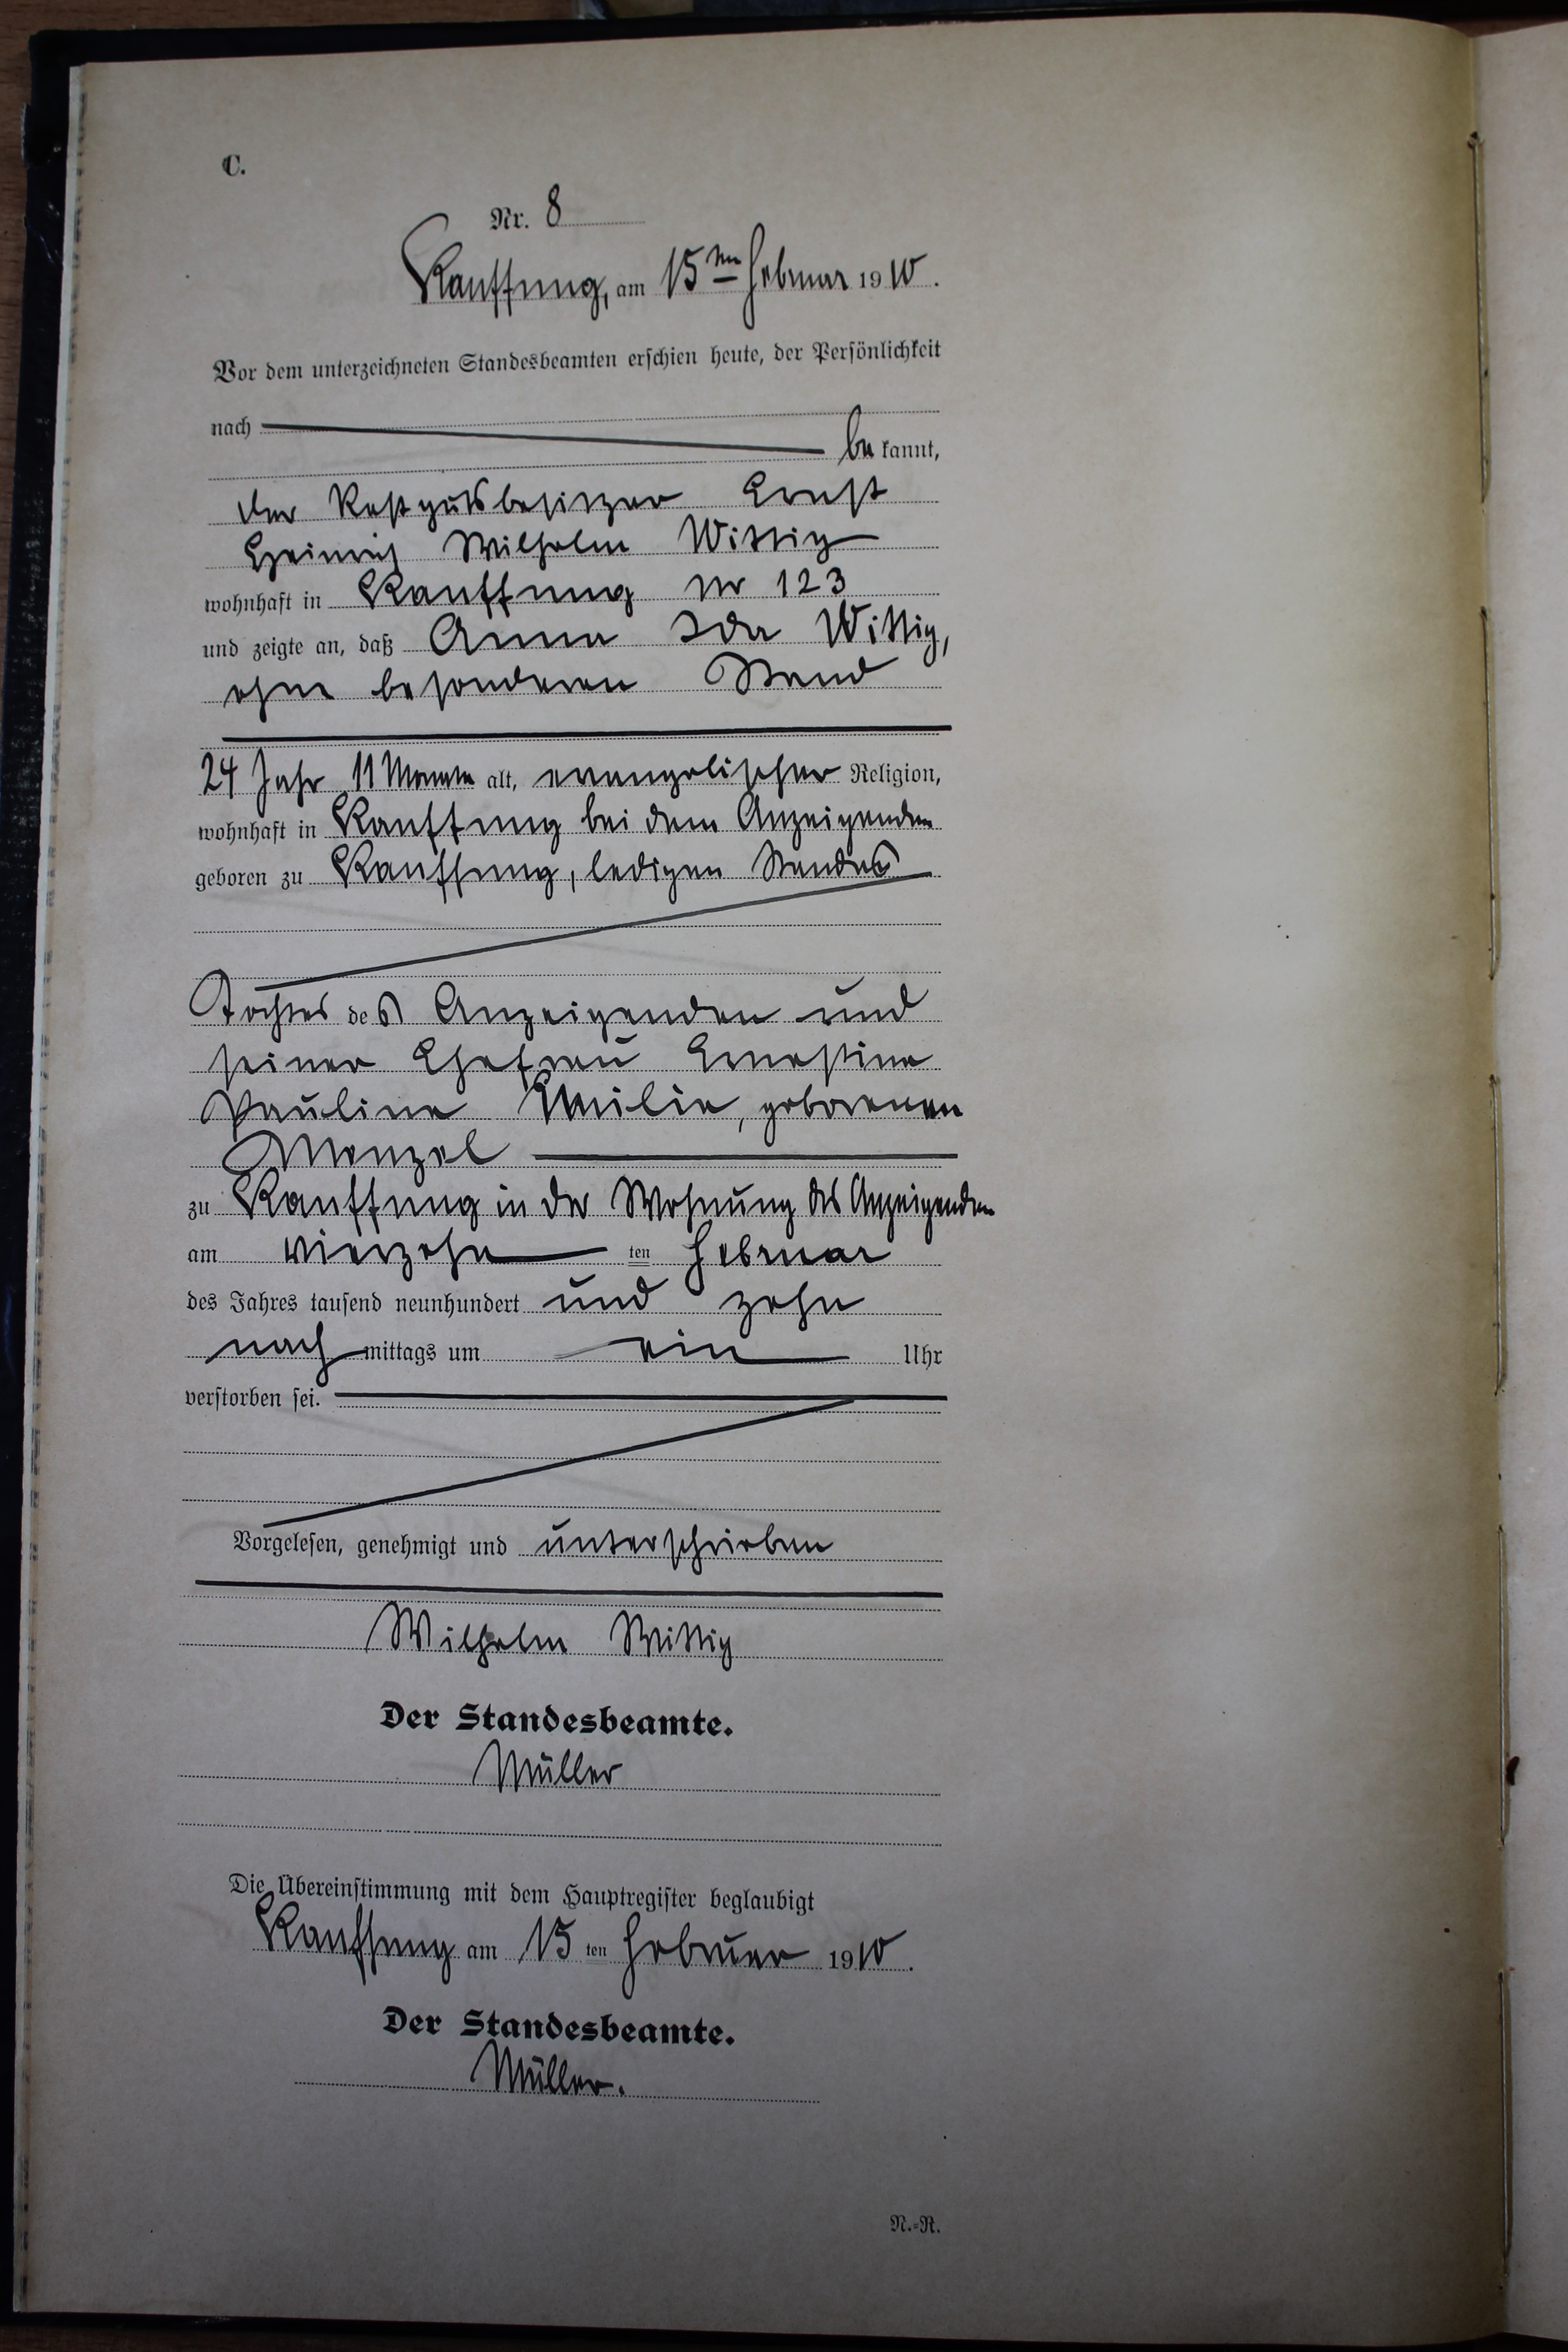 C.
Nr. 8
Kauffung, am 15ten Februar 1910.
Vor dem unterzeichneten Standesbeamten erschien heute, der Persönlichkeit
nach
be kannt,
der Restgutsbesitzer Ernst
Heinrich Wilhelm Wittig
wohnhaft in Kauffung Nr 123
und zeigte an, daß Anna Ida Wittig,
ohne besonderen Stand
24 Jahr 11 Monate alt, evangelischer Religion,
wohnhaft in Kauffung bei dem Anzeigenden
geboren zu Kauffung, ledigen Standes
Tochter des Anzeigenden und
seiner Ehefrau Ernestine
Pauline Emilie, geborenen
Menzel
zu Kauffung in der Wohnung des Anzeigenden
am vierzehn ten Februar
des Jahres tausend neunhundert und zehn
nach mittags um ein Uhr
verstorben sei.
Vorgelesen, genehmigt und unterschrieben
Wilhelm Wittig
Der Standesbeamte.
Müller
Die Übereinstimmung mit dem Hauptregister beglaubigt
Kauffung am 15 ten Februar 1910.
Der Standesbeamte.
Müller.
N.-R.